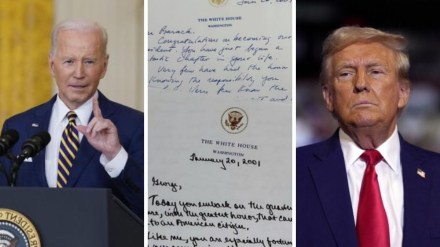 THE WHITE HOUSE
WASHINGTON
Barack
Congratulations on becoming our
sident. You have just begun a
chapter in your life.
Very few have had the honor
knowing the responsibility you
Very few know the
THE WHITE HOUSE
WASHINGTON
January 20, 2001
George,
Today you embark on the greates
me, with the greatest honor, that can
to an American citizen.
Like me, you are especially fortun